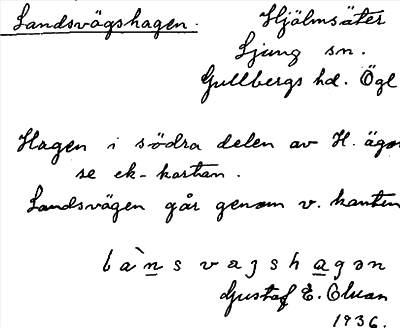 Landsvägshagen. Hjälmsäter
Ljung sn.
Gullbergs hd. Ögl
Hagen i södra delen av H. ägor
se ek-kartan.
Landsvägen går genom v. kanten
la`nsvaʒshagən
Gustaf E. Olsson
1936.